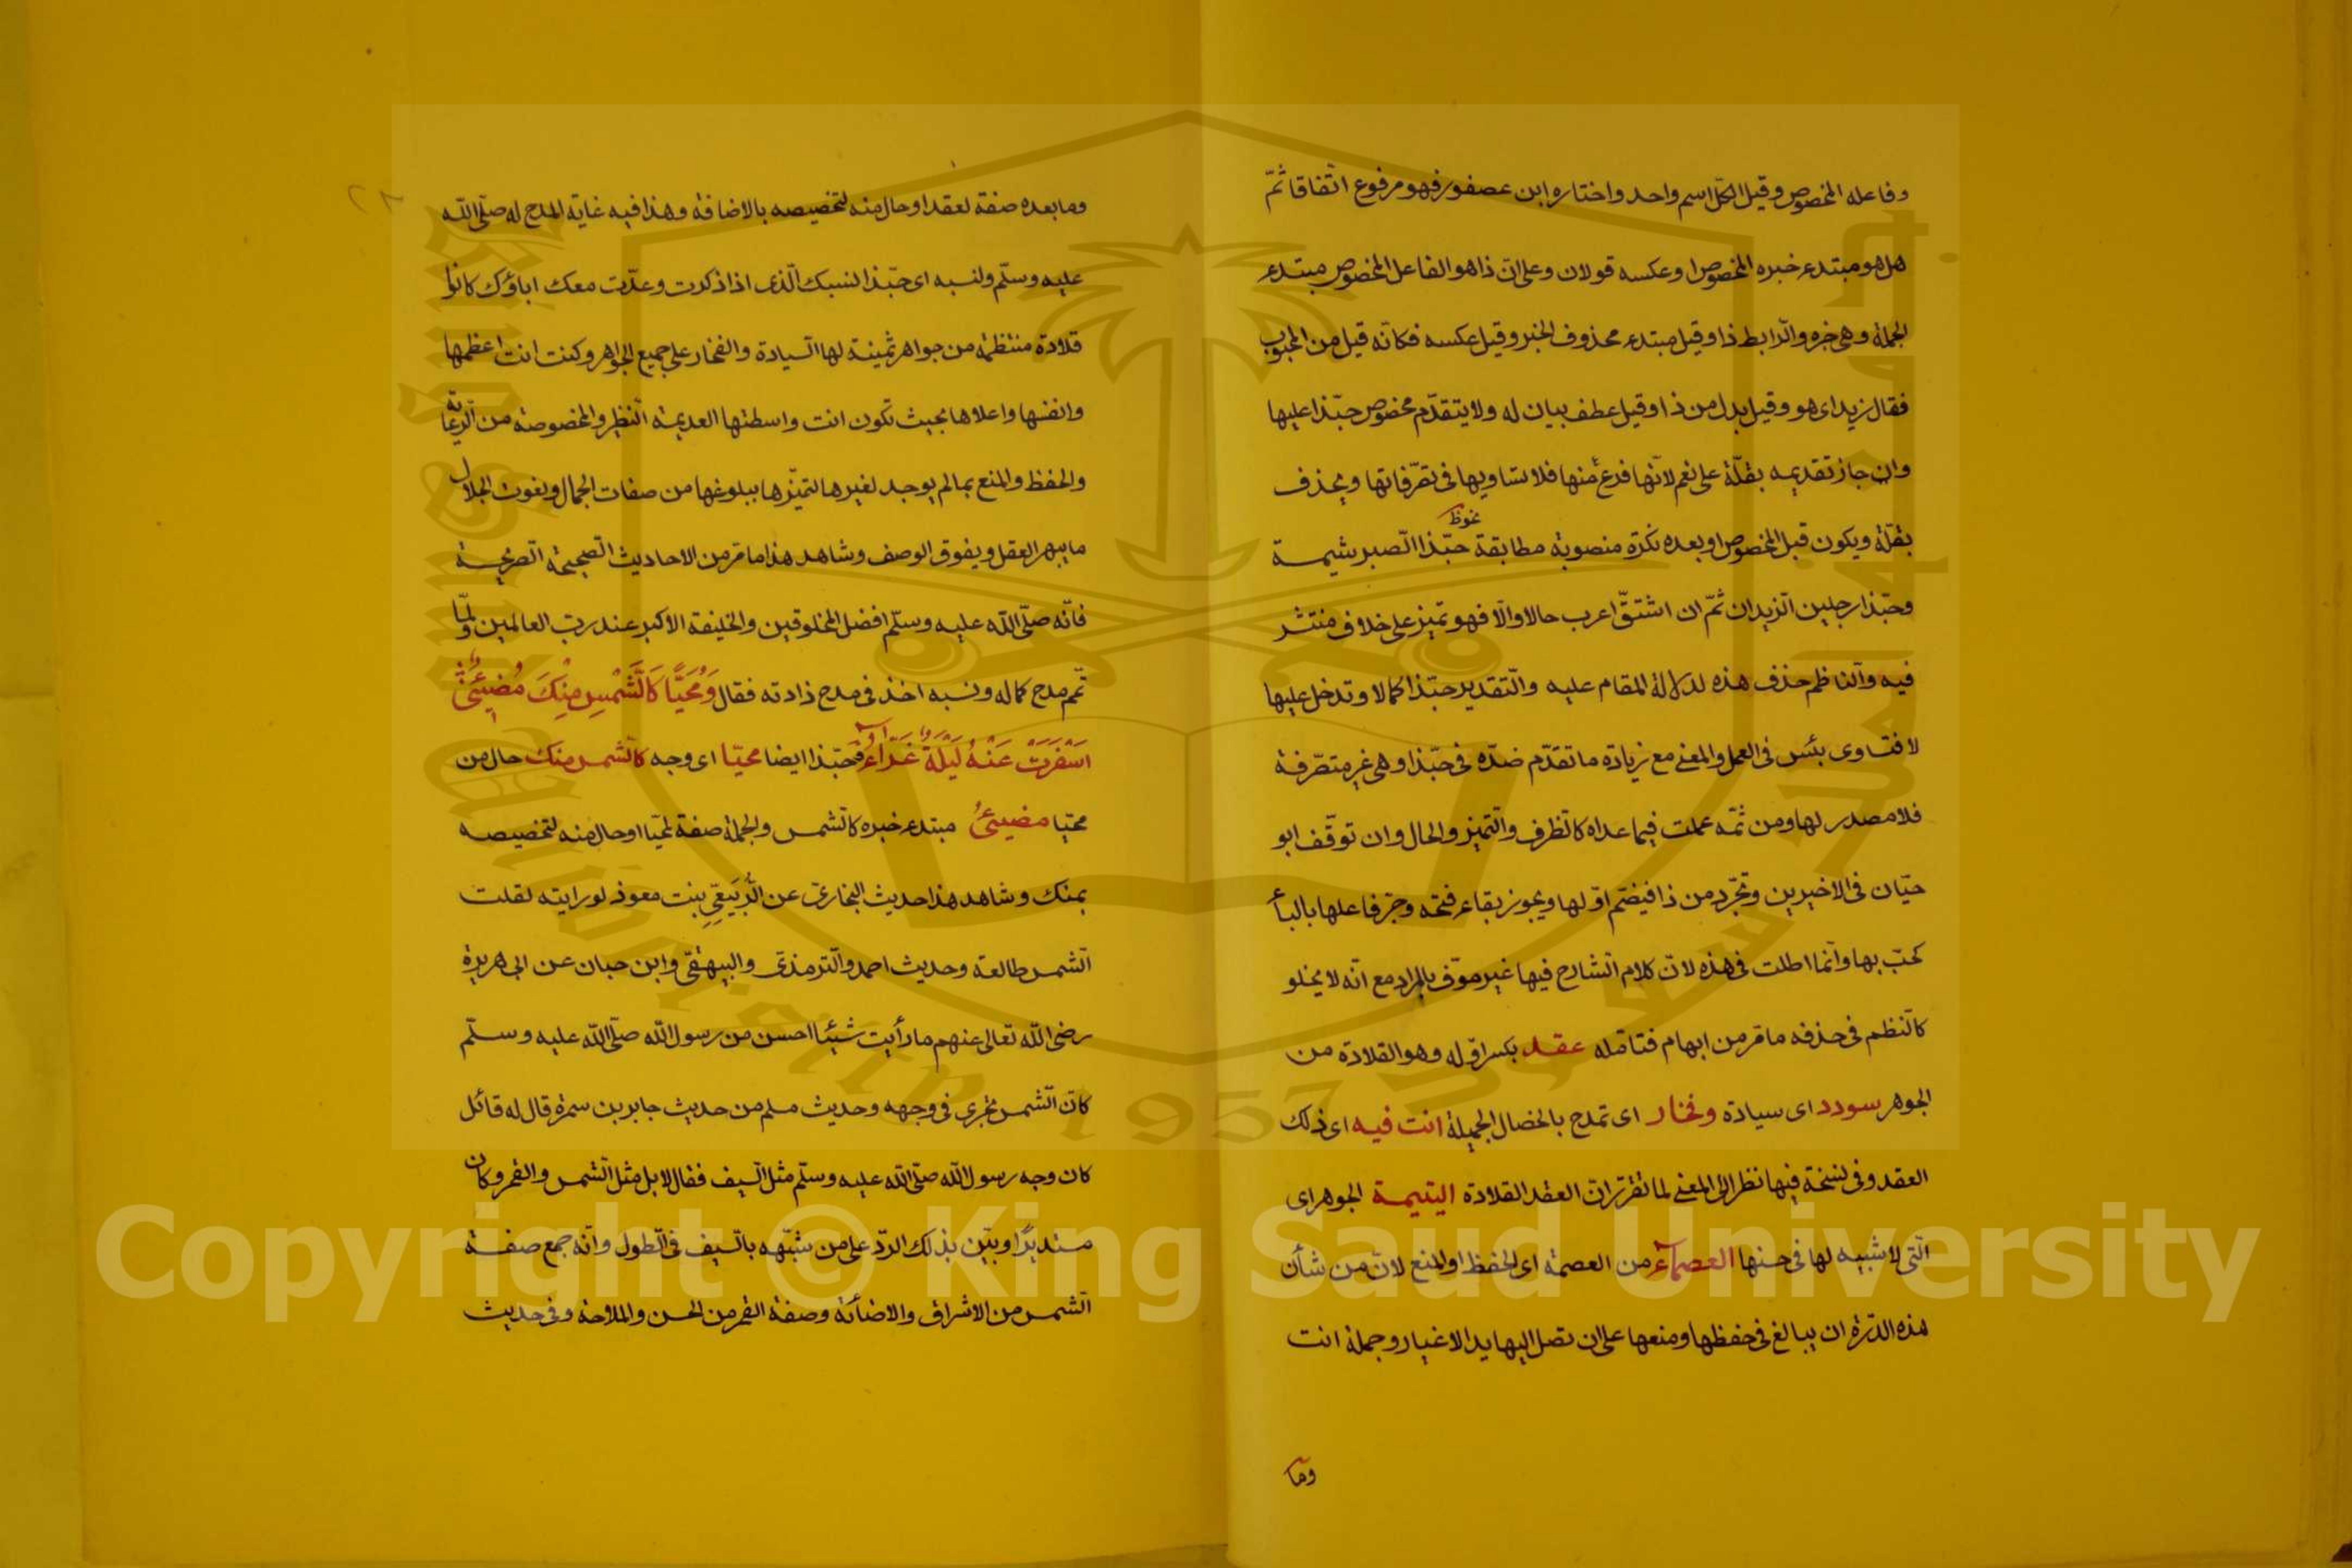 وفاعله المخصوص وقيل الكل اسم واحد واختاره ابن عصفور فهو مرفوع اتفاقا ثمّ
هل هو مبتدء خبره المخصوص او عكسه قولان وعلى انّ ذا هو الفاعل المخصوص مبتدء
الجملة وهى خبره والرّابط ذا وقيل مبتدء محذوف الخبر وقيل عكسه فكانّه قيل من المحبوب
فقال زيد اى هو وقيل بدل من ذا وقيل عطف بيان له ولا يتقدّم مخصوص حبّذا عليها
وان جاز تقديمه بقلّة على نعم لانّها فرع منها فلا تساويها فى تصرّفاتها ويحذف
بقلّة ويكون قبل المخصوص او بعده نكرة منصوبة مطابقة نحو حبّذا الصّبر شيمة
وحبّذا رجلين الزيدان ثمّ ان اشتقّ اعرب حالا والّا فهو تميز على خلاف منتشر
فيه والنّاظم حذف هذه لدلالة المقام عليه والتّقدير حبّذا كمالا وتدخل عليها
لا فتساوى بئس فى العمل والمعنى مع زيادة ما تقدّم ضدّه فى حبّذا وهى غير متصرّفة
فلا مصدر لها ومن ثمّه عملت فيما عداه كالظرف والتّميز والحال وان توقّف ابو
حيّان فى الاخيرين وتجرّد من ذا فيضم اوّلها ويجوز بقاء فتحه وجرّ فاعلها بالباء
كحبّ بها وانّما اطلت فى هذه لانّ كلام الشارح فيها غير موّف بالمراد مع انّه لا يخلو
كالنّظم فى حذفه ما مّر من ابهام فتامّله عقد بكسر اوّله وهو القلادة من
الجوهر سودد اى سيادة وفخار اى تمدح بالخصال الجميلة انت فيه اى ذلك
العقد وفى نسخة فيها نظرا الى المعنى لما تقرّر انّ العقد القلادة اليتيمة الجوهر اى
الّتى لا شبيه لها فى حسنها العصماء من العصمة اى الحفظ او المنع لانّ من شأن
هذه الدّرة ان يبالغ فى حفظها ومنعها على ان تصل اليها يد الاغيار وجملة انت
وما
وما بعده صفة لعقد او حال منه لتخصيصه بالاضافة وهذا فيه غاية المدح له صلّى اللّه
عليه وسلّم ولنسبه اى حبّذا لنسبك الّذى اذا ذكرت وعدّت معك اباؤك كانوا
قلادة منتظمة من جواهر ثمينة لها السّيادة والفخار على جميع الجواهر وكنت انت اعظمها
وانفسها واعلاها بحيث تكون انت واسطتها العديمة النّظير والمخصوصة من الرّعاية
والحفظ والمنع بما لم يوجد لغيرها لتميّزها ببلوغها من صفات الجمال ونعوت الجلال
ما يبهر العقل ويفوق الوصف وشاهد هذا ما مّر من الاحاديث الصّحيحة الصّريحة
فانّه صلّى اللّه عليه وسلّم افضل المخلوقين والخليفة الاكبر عند ربّ العالمين ولمّا
تمّم مدح كماله ونسبه اخذ فى مدح ذاته فقال وَمُحَيًّا كَالشَّمْسِ مِنْكَ مُضِيئٌ
اَسْفَرَتْ عَنْهُ لَيْلَةٌ غَرَّاءُ وحبّذا ايضا محيّا اى وجه كالشّمس منك حال من
محيّا مضيئُ مبتدء خبره كالشّمس والجملة صفة لمحيّا او حال منه لتخصيصه
بمنك وشاهد هذا حديث البخارىّ عن الرُّبَيّعِ بنت معوذ لو رايته لقلت
الشّمس طالعة وحديث احمد والتّرمذىّ والبيهقىّ وابن حبان عن ابى هريرة
رضى اللّه تعالى عنهم ما رأيت شيئا احسن من رسول اللّه صلّى اللّه عليه وسلّم
كانّ الشّمس تجرى فى وجهه وحديث مسلم من حديث جابر بن سمرة قال له قائل
كان وجه رسول اللّه صلّى اللّه عليه وسلّم مثل السّيف فقال لا بل مثل الشّمس والقمر وكان
مستديرًا وبيّن بذلك الردّ على من شبّهه بالسّيف فى الطول وانّه جمع صفة
الشّمس من الاشراق والاضأئة وصفة القمر من الحسن والملاحة وفى حديث
Copyright © King Saud University
King Saud University
1957